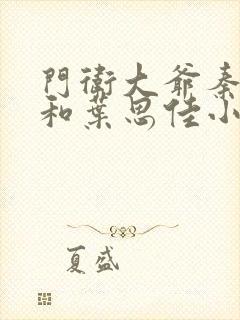 門衛大爺秦
和葉思佳小
夏盛